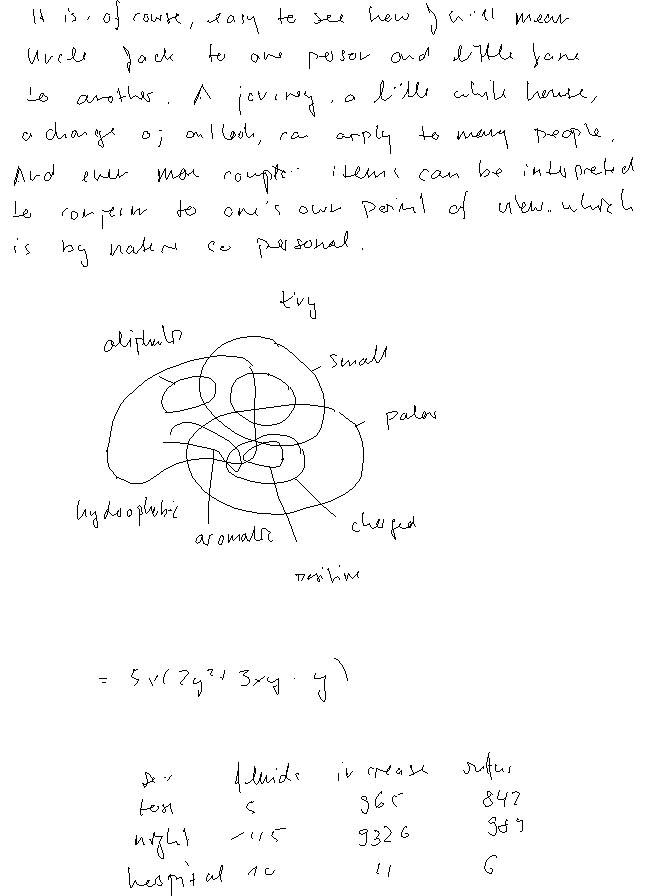 It is, of course, easy to see how J will mean
Uncle Jack to one person and little Jane
to another. A journey, a little white house,
a change of outlook, can apply to many people.
And even more complex items can be interpreted
to conform to one's own point of view which
is by nature so personal.
tiny
aliphatic
small
polar
hydrophobic
aromatic
charged
positive
= 5x(2y²+ 3xy - y)
fluids increase
test 5 965 842
night -115 9326 989
hospital 10 11 6